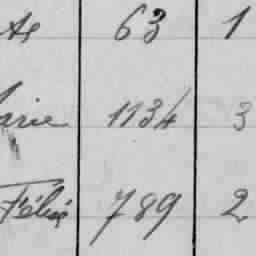 As 63 1
arie 1134 3
Félix 789 2